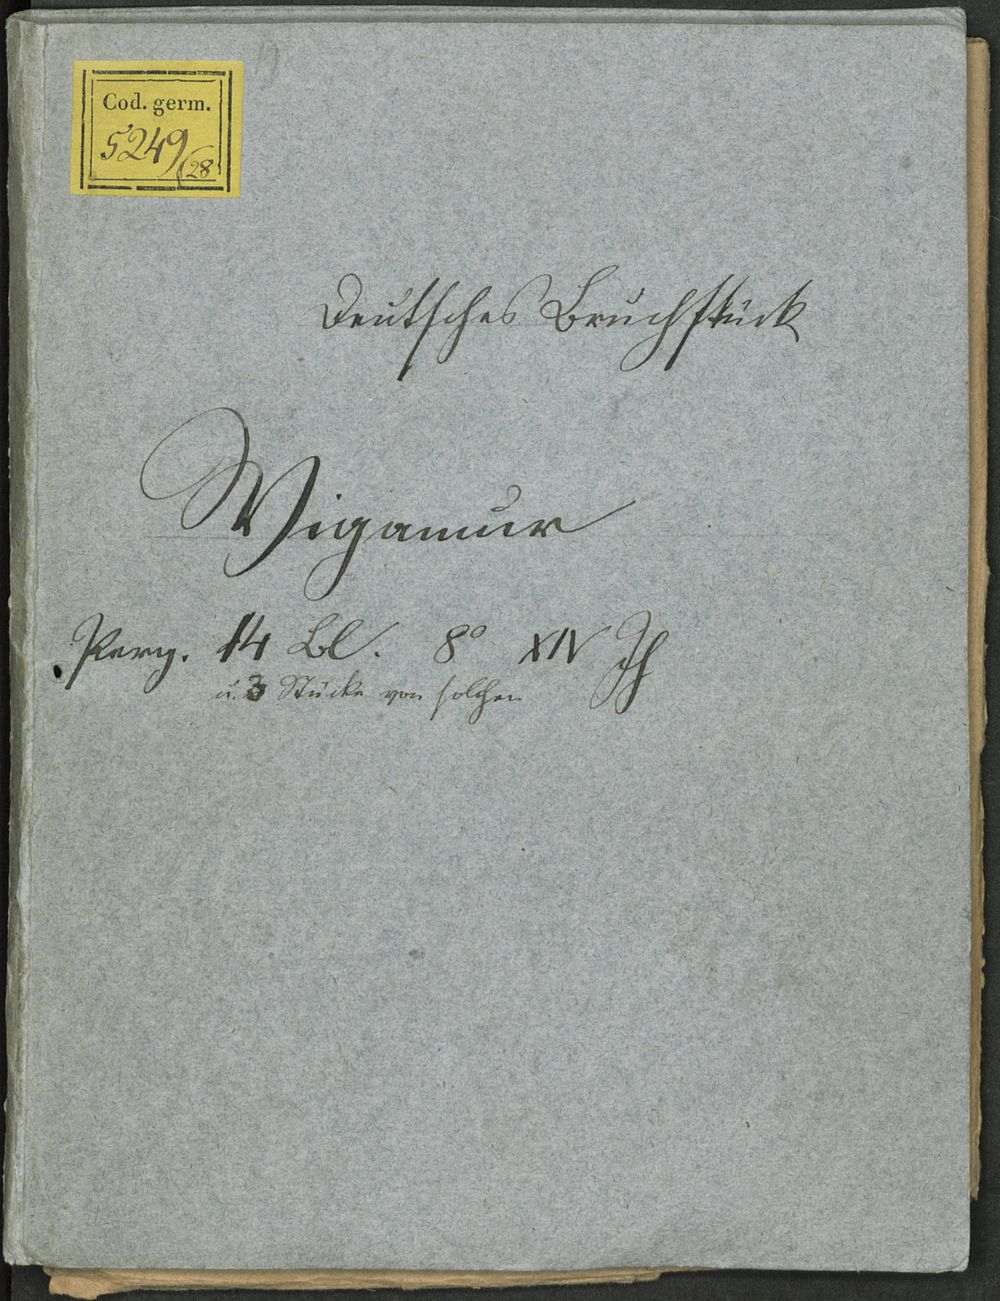 Cod. germ.
5249/28
Deutsches Bruchstück
Wigamur
Perg. 14 Bl. 8° XIV Jh
u. 3 Stücke von solchen